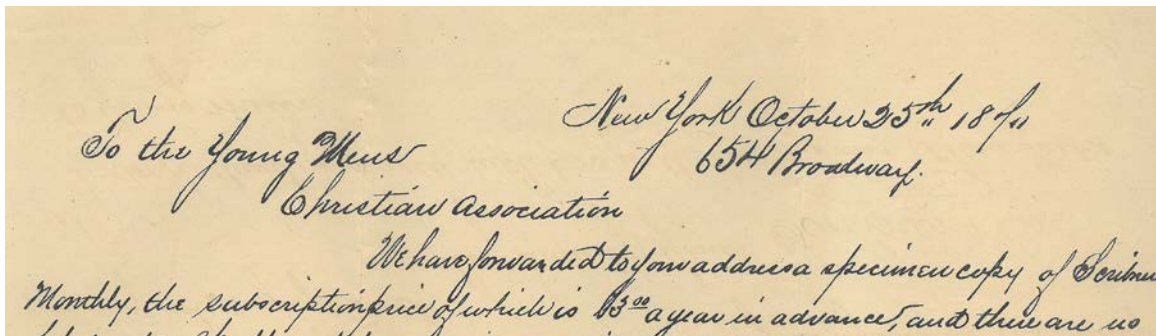 New York October 25th 187
654 Broadway.
To the Young Mens
Christian Association
We have forwarded to your address a specimen copy of Scribner
Monthly, the subscription price of which is $3 00 a year in advance, and there are no